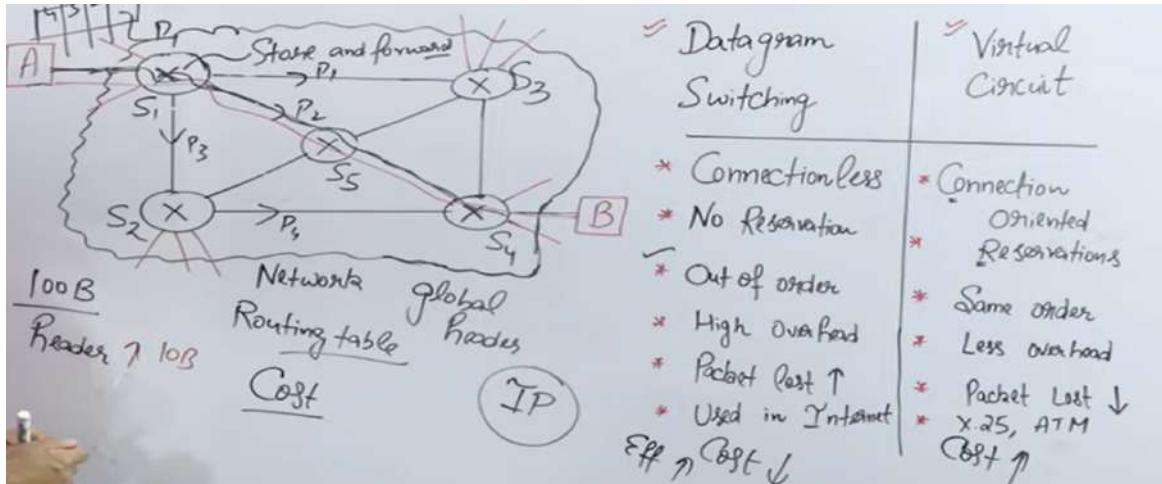 4 3 2 1
P1
A
Store and forward
P1
S1
S3
P2
P3
S5
S2
P4
S4
B
100B
Header ↑ 10B
Network
Routing table
Cost
global
header
IP
Datagram
Switching
* Connectionless
* No Reservation
* Out of order
* High Overhead
* Packet lost ↑
* Used in Internet
Eff ↑ Cost ↓
Virtual
Circuit
* Connection
Oriented
* Reservations
* Same order
* Less overhead
* Packet Lost ↓
* X.25, ATM
Cost ↑